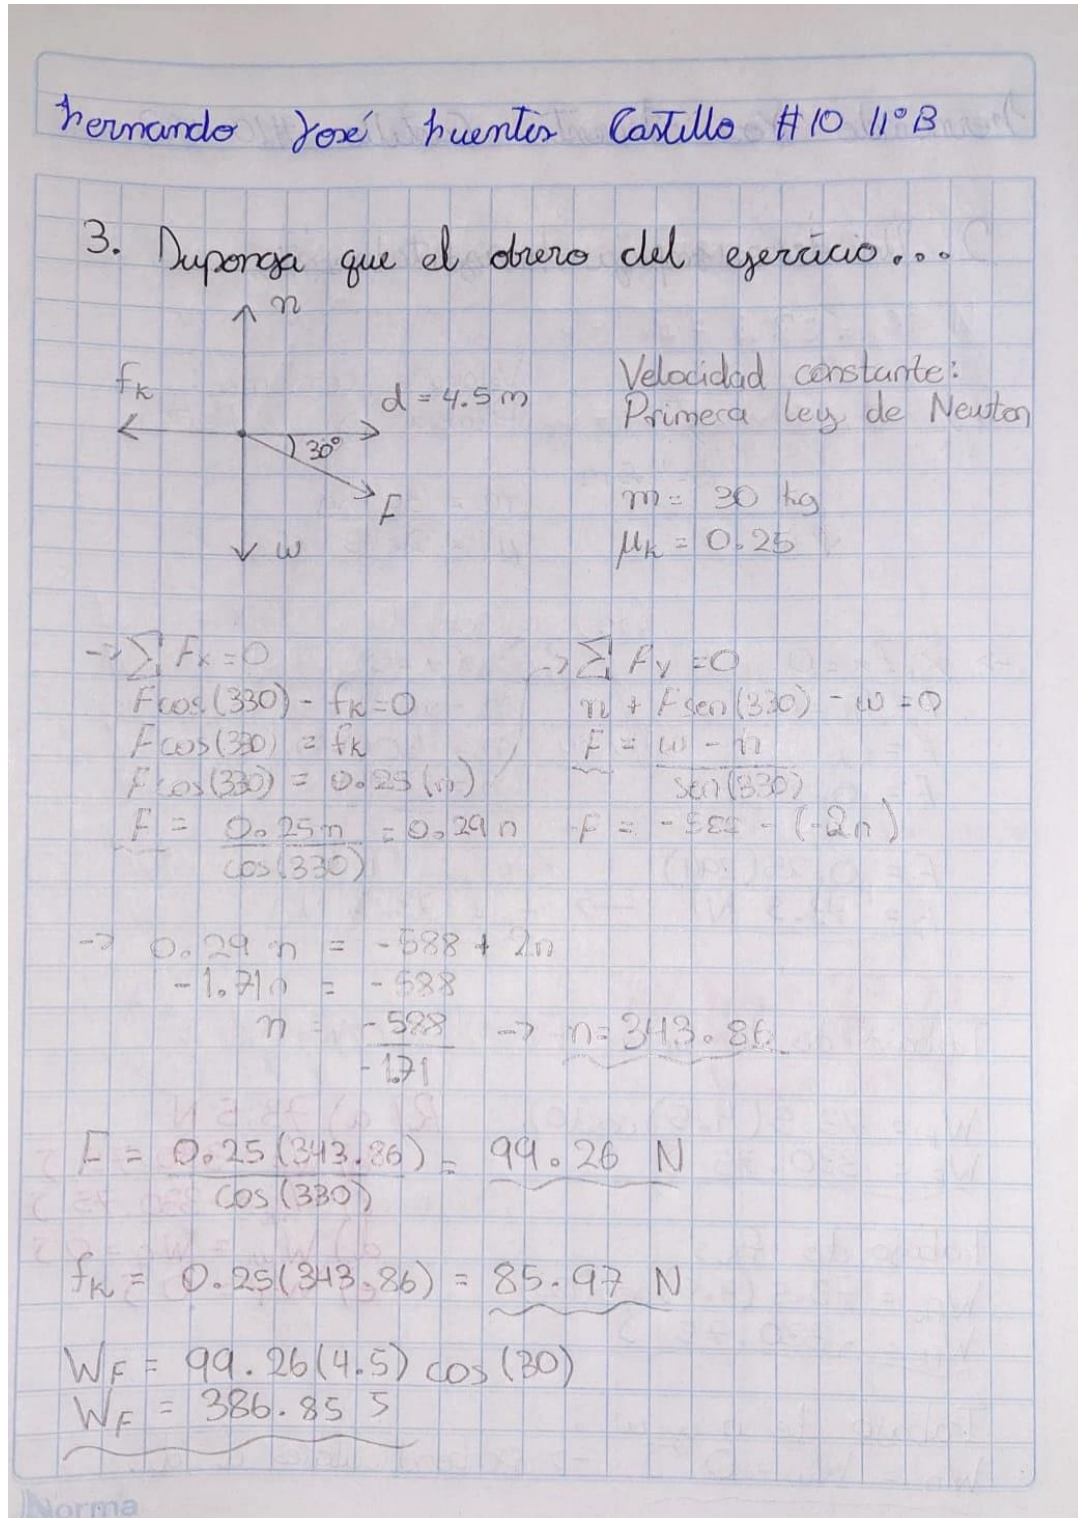 Hernando José Fuentes Castillo #10 11°B
3. Suponga que el obrero del ejercicio...
n
fk
d = 4.5 m
30°
F
w
Velocidad constante:
Primera Ley de Newton
m = 30 kg
μk = 0.25
-> ∑ Fx = 0
Fcos(330) - fk = 0
Fcos(330) = fk
Fcos(330) = 0.25(n)
F = 0.25n / cos(330) = 0.29 n
-> ∑ Fy = 0
n + Fsen(330) - w = 0
F = w - n / sen(330)
F = -588 - (-2n)
-> 0.29 n = -588 + 2n
-1.71n = -588
n = -588 / -1.71 -> n = 343.86
F = 0.25(343.86) / cos(330) = 99.26 N
fk = 0.25(343.86) = 85.97 N
WF = 99.26(4.5) cos(30)
WF = 386.85 J
Norma